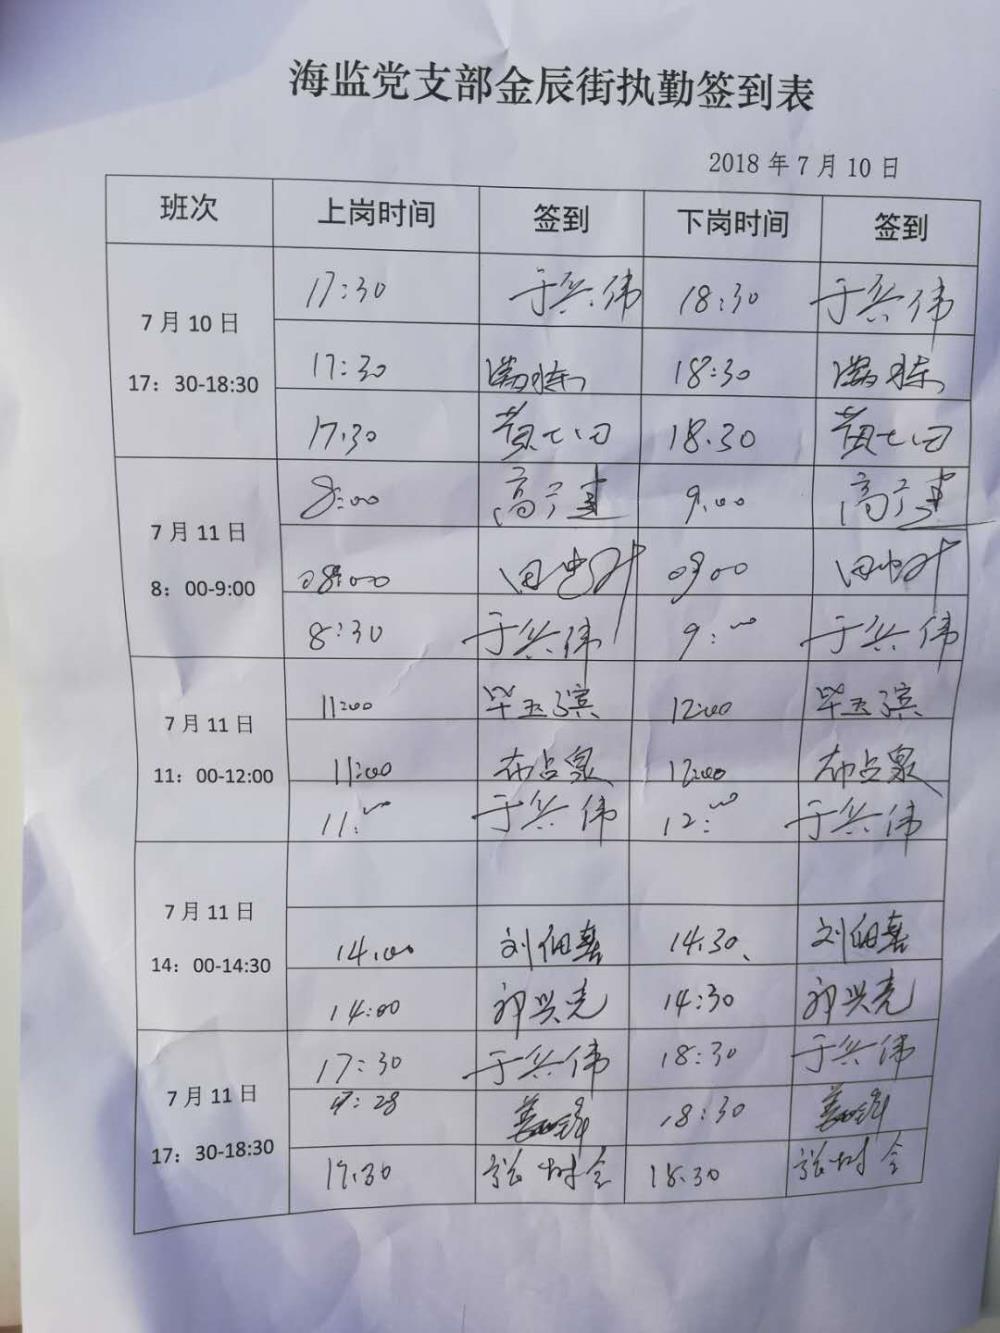 海监党支部金辰街执勤签到表
2018 年 7 月 10 日
班次 上岗时间 签到 下岗时间 签到
7 月 10 日
17：30-18:30
17:30 于兵伟 18:30 于兵伟
17:30 18:30
17:30 18:30
7 月 11 日
8：00-9:00
8:00 高广建 9:00 高广建
08:00 0900
8:30 于兵伟 9:00 于兵伟
7 月 11 日
11：00-12:00
11:00 毕玉滨 12:00 毕玉滨
11:00 布占泉 12:00 布占泉
11:00 于兵伟 12:00 于兵伟
7 月 11 日
14：00-14:30
14:00 刘佃喜 14:30 刘佃喜
14:00 邵兴亮 14:30 邵兴亮
7 月 11 日
17：30-18:30
17:30 于兵伟 18:30 于兵伟
17:28 18:30
17:30 18:30